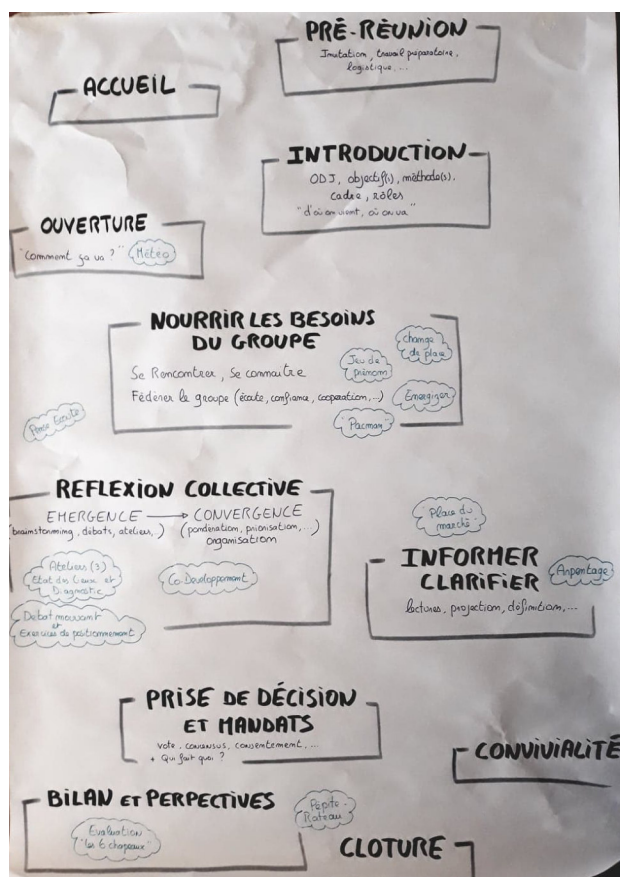 PRÉ-RÉUNION
Invitation, travail préparatoire,
logistique, ...
ACCUEIL
INTRODUCTION
ODJ, objectif(s), méthode(s),
cadre, rôles
"d'où on vient, où on va"
OUVERTURE
"Comment ça va ?"
Météo
NOURRIR LES BESOINS
DU GROUPE
change
de place
Jeu de
prénom
Se Rencontrer, Se connaître
Fédérer le groupe (écoute, confiance, coopération, ...)
Energizer
"Pacman"
Pense Ecoute
REFLEXION COLLECTIVE
EMERGENCE → CONVERGENCE
(brainstorming, débats, ateliers,..)
(pondération, priorisation, ...)
organisation
Ateliers (3)
Etat des lieux et
Diagnostic
Co-Développement
Débat mouvant
et
Exercices de positionnement
"Place du
marché"
INFORMER
CLARIFIER
Arpentage
lectures, projection, définition, ...
PRISE DE DÉCISION
ET MANDATS
vote, consensus, consentement, ...
+ Qui fait quoi ?
CONVIVIALITÉ
BILAN ET PERPECTIVES
Pépite -
Rateau
Evaluation
"les 6 chapeaux"
CLOTURE